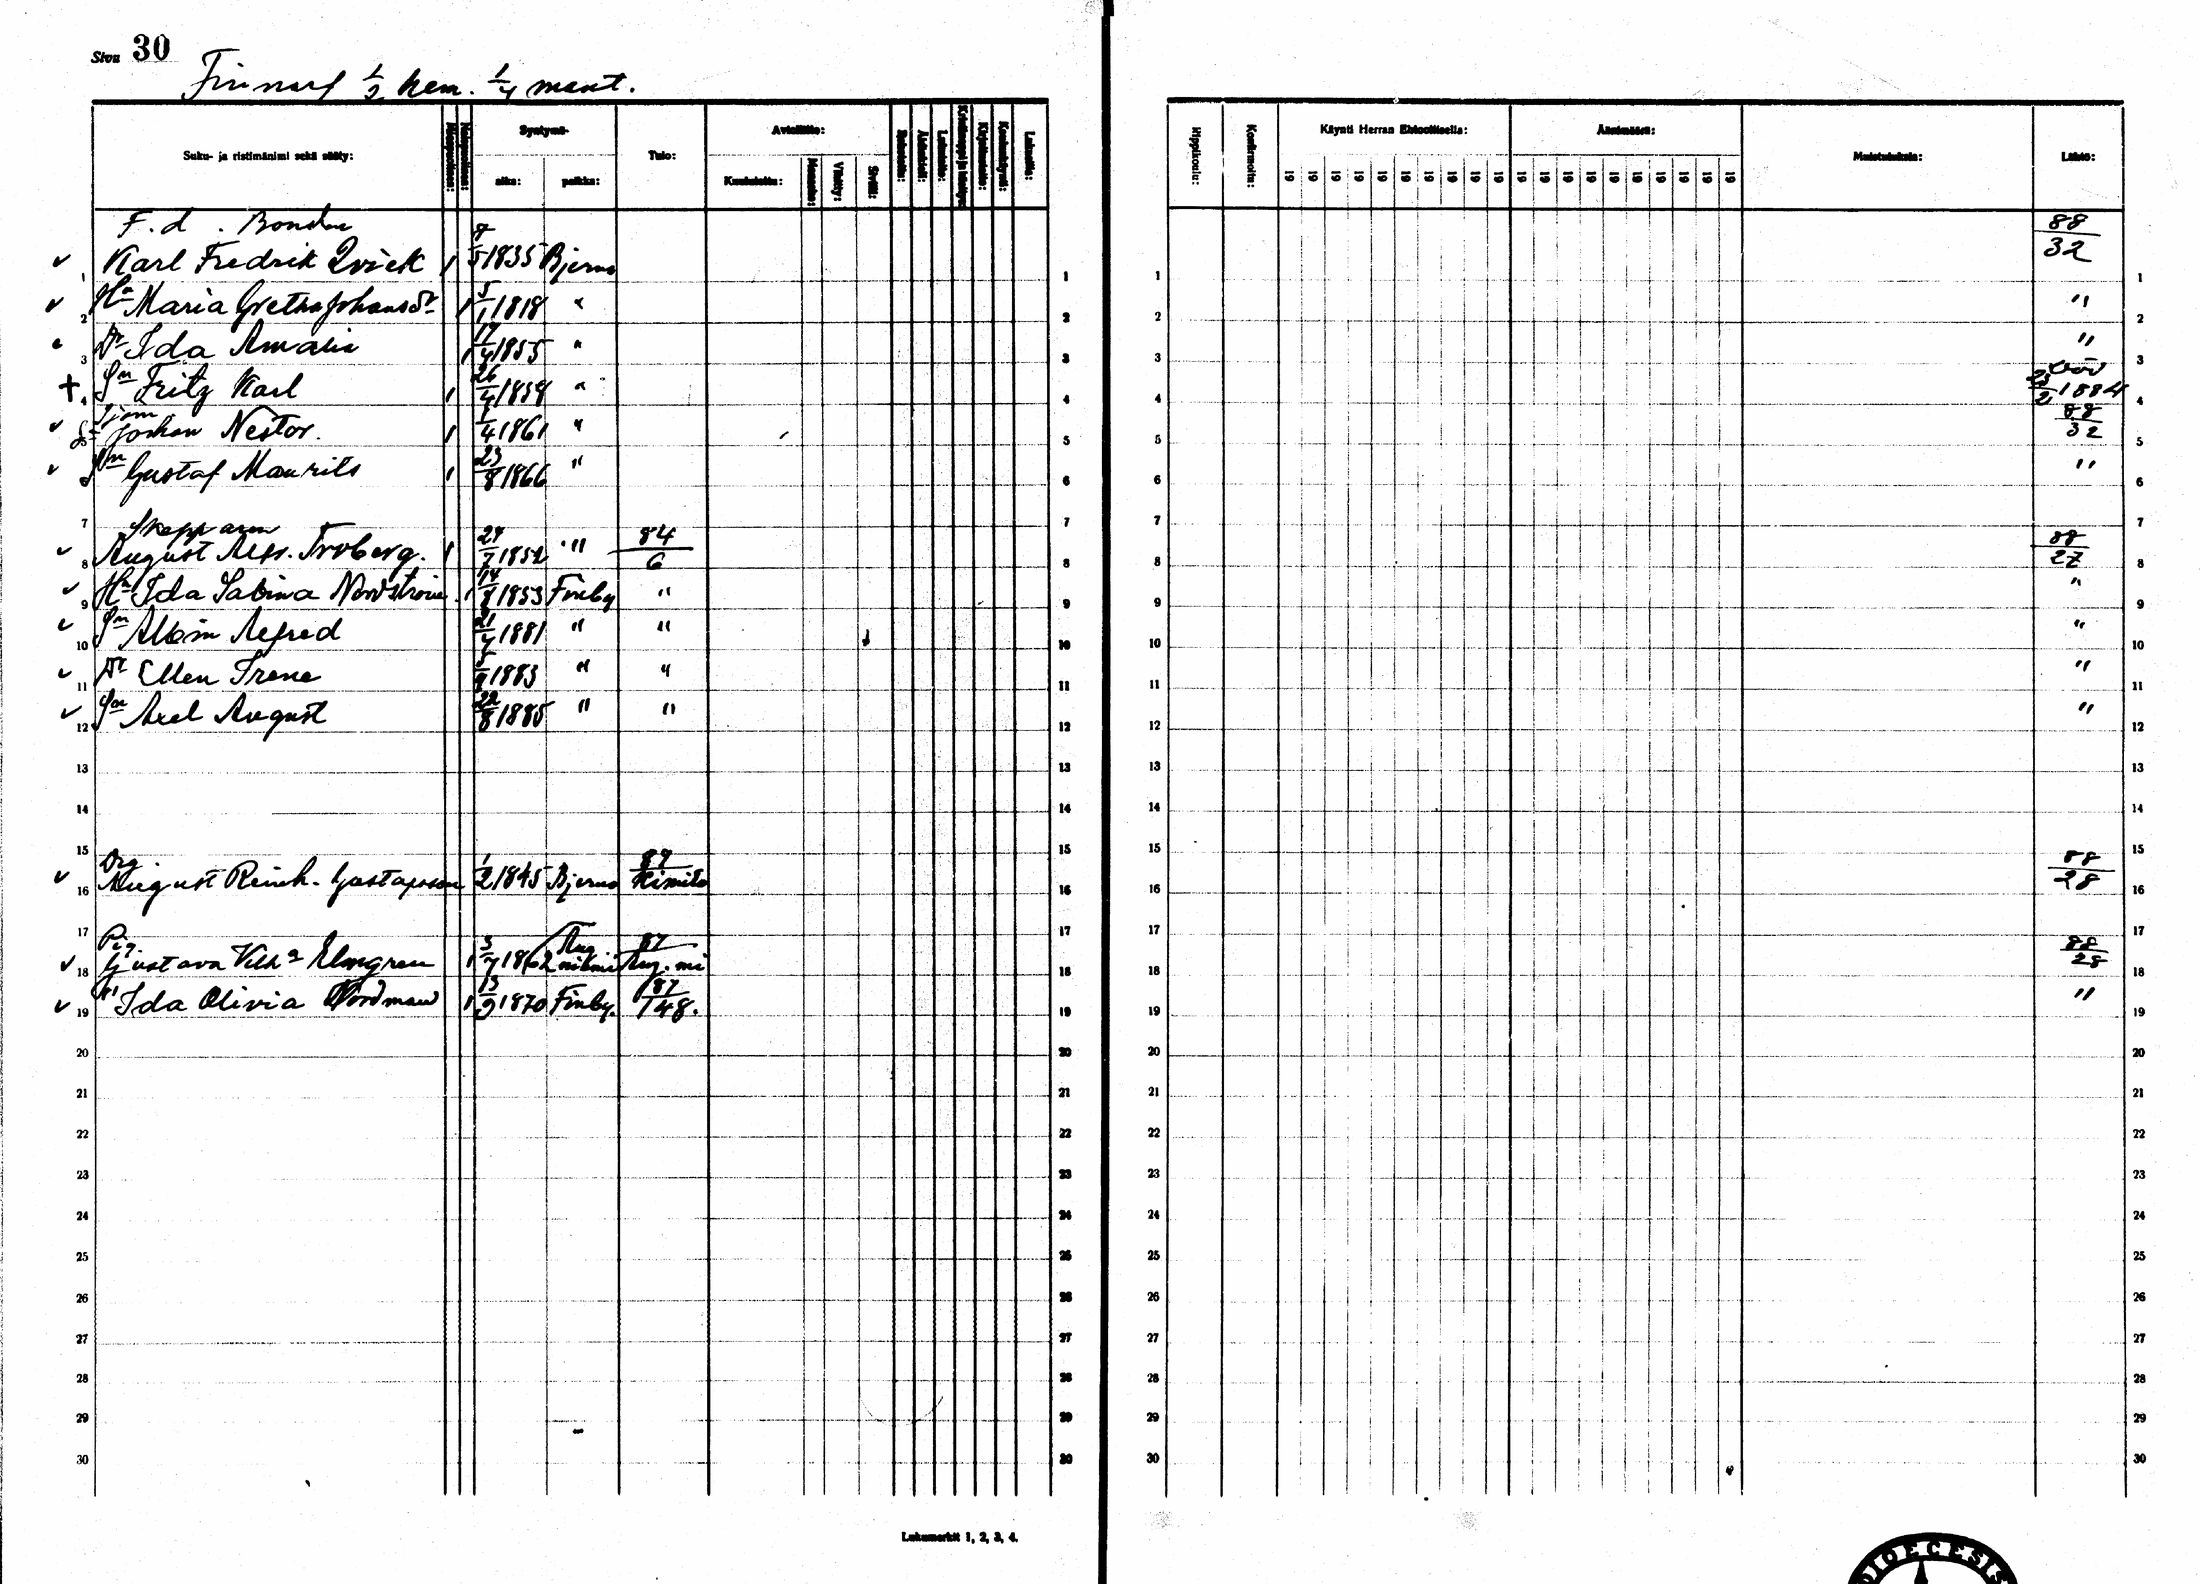 Sivu 30
Finnarf 1/2 hem. 1/4 mant.
Suku- ja ristimänimi sekä sääty: Miespuolinen: Naispuolinen: Syntymä- aika: paikka: Tulo: Avioliitto: Kuulutettu: Vihitty: Siviili:
Käynti Herran Ehtoollisella: Äänimäärä: Muistutuksia: Lähtö:
Rippikoulu: Konfirmoitu: 19 19 19 19 19 19 19 19 19 19 19 19 19 19 19 19 19 19 19 19
F. d. Bonden
1 Karl Fredrik Qvick 1 8/5 1835 Bjerno 88/32
2 Hu Maria Gretha Johansdr 1 5/1 1818 " "
3 Dr Ida Amalia 1 17/4 1855 " "
4 Sn Fritz Karl 1 26/4 1858 " död 23/2 1884
5 Sjöm Johan Nestor. 1 1/4 1861 " 88/32
6 Sn Gustaf Maurits 1 23/8 1866 " "
7 Skepparen
8 August Alfr. Froberg. 1 24/7 1852 " 84/6 88/27
9 Hu Ida Sabina Nordström 1 14/8 1853 Finby " "
10 Sn Albin Alfred 21/4 1881 " " "
11 Dr Ellen Irene 1883 " " "
12 Sn Axel August 22/8 1885 " " "
13
14
15 Drg.
16 August Reinh. Gustafsson 1/2 1845 Bjerno 87/Kimito 88/28
17 Pig.
18 Gustava Vilh:a Elmgren 1 3/7 1862 87 88/28
19 Ida Olivia Nordman 1 13/9 1870 Finby. 87/148. "
20
21
22
23
24
25
26
27
28
29
30
Lukumerkit 1, 2, 3, 4.
DIOECESIS